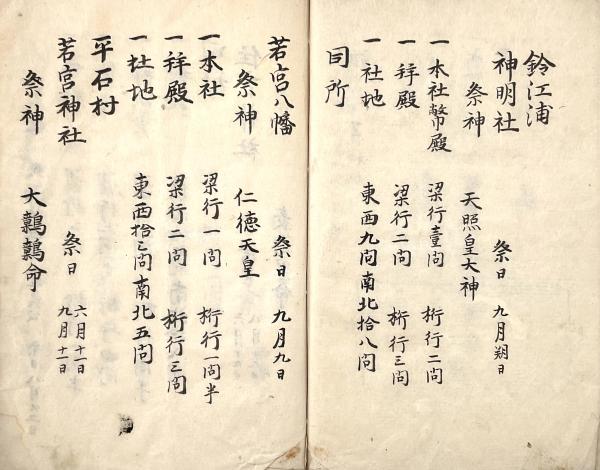 鈴江浦
神明社 祭日 九月朔日
祭神 天照皇大神
一本社幣殿 梁行壹間 桁行二間
一拝殿 梁行二間 桁行三間
一社地 東西九間南北拾八間
同所
若宮八幡 祭日 九月九日
祭神 仁徳天皇
一本社 梁行一間 桁行一間半
一拝殿 梁行二間 桁行三間
一社地 東西拾三間南北五間
平石村
若宮神社 祭日 六月十一日 九月十一日
祭神 大鷦鷯命